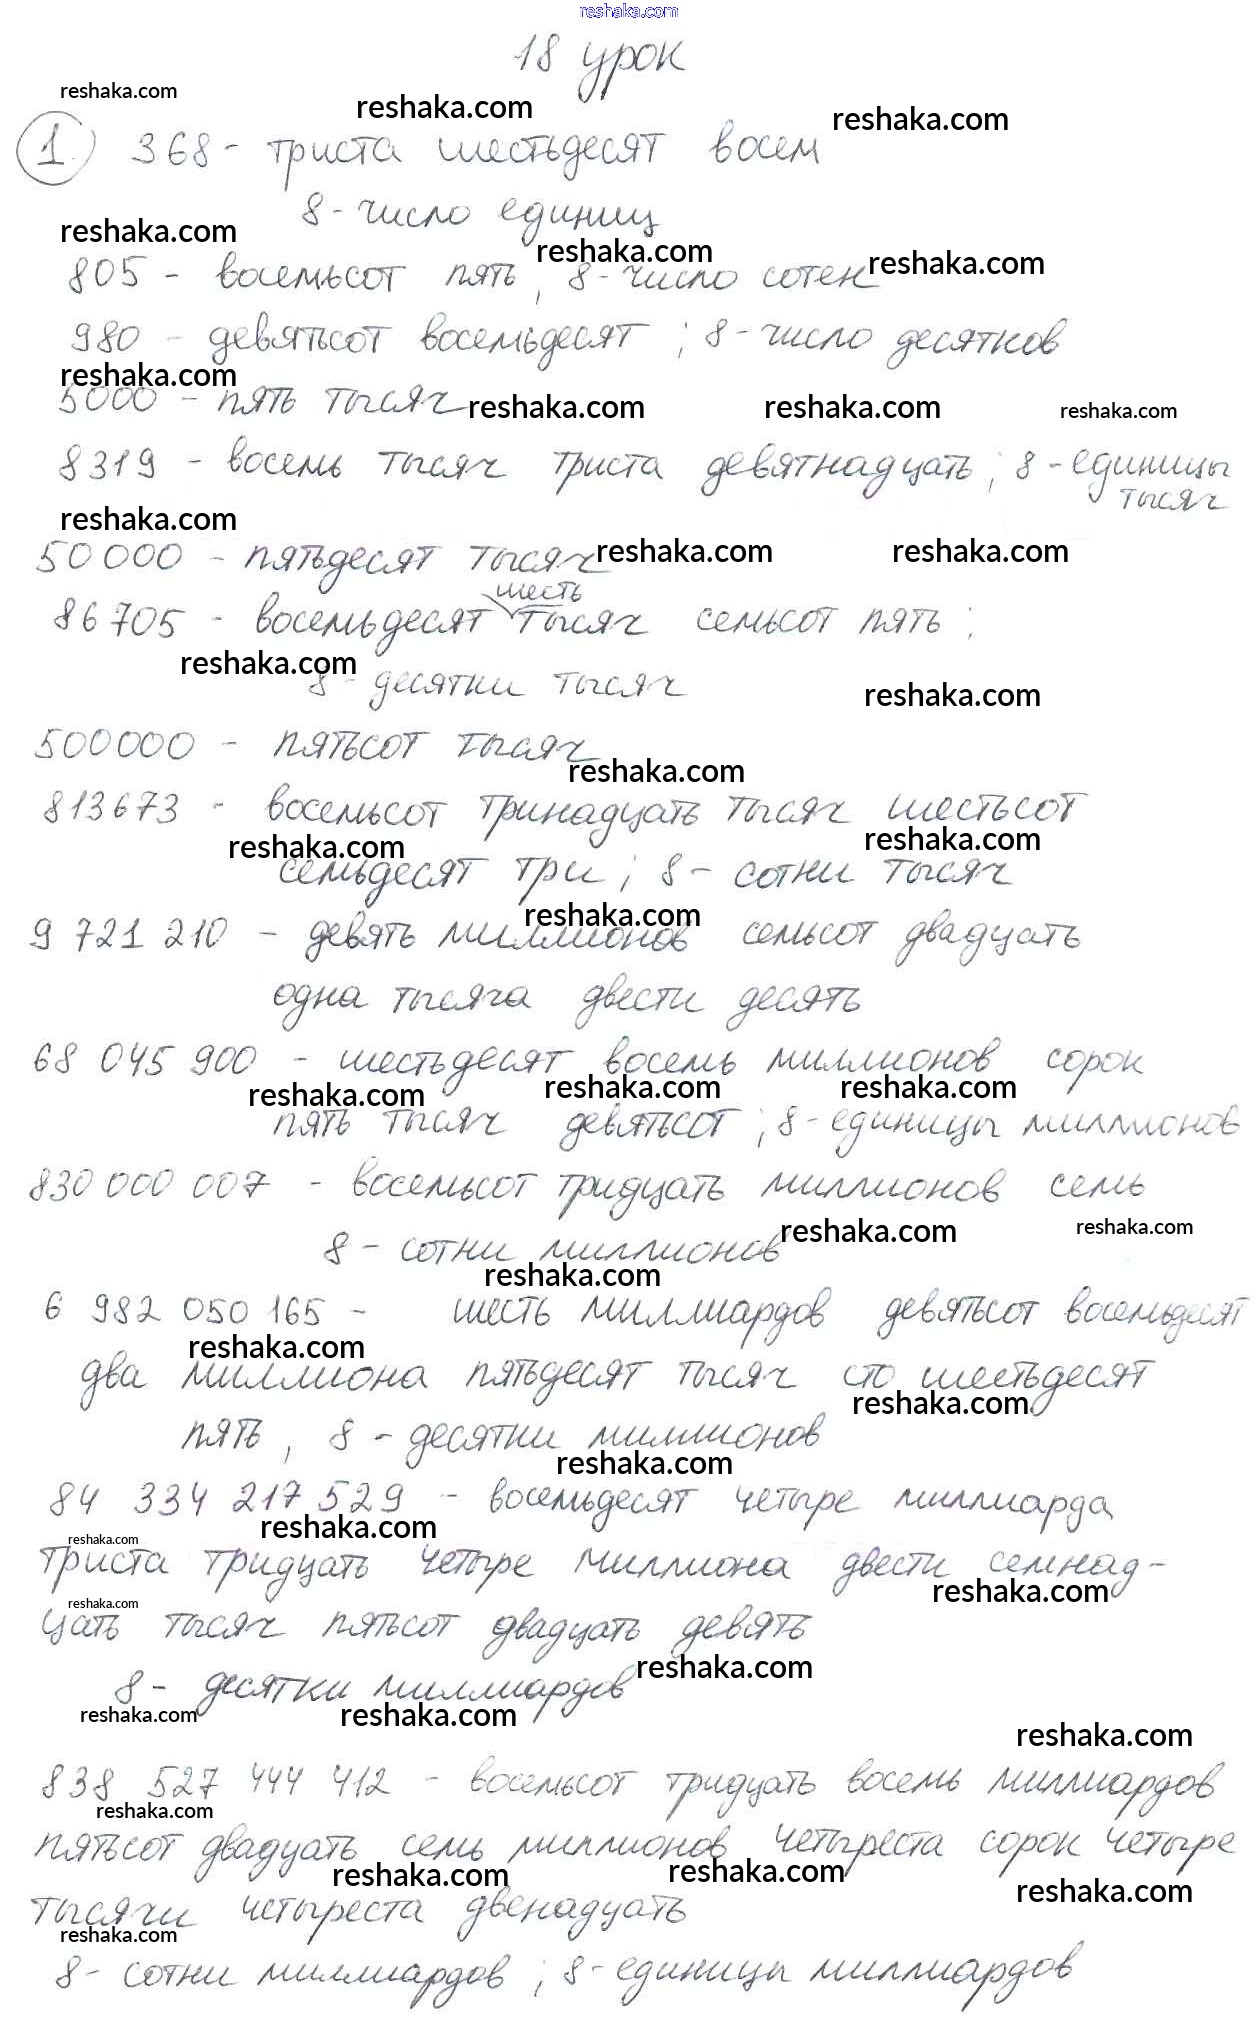 reshaka.com
18 урок
reshaka.com
reshaka.com
reshaka.com
1 368 - триста шестьдесят восем
8 - число единиц
reshaka.com
reshaka.com
reshaka.com
805 - восемьсот пять, 8 - число сотен
980 - девятьсот восемьдесят ; 8 - число десятков
reshaka.com
5000 - пять тысяч
reshaka.com
reshaka.com
reshaka.com
8319 - восемь тысяч триста девятнадцать ; 8 - единицы
тысяч
reshaka.com
50 000 - пятьдесят тысяч
reshaka.com
reshaka.com
шесть
86 705 - восемьдесят тысяч семьсот пять ;
reshaka.com
8 - десятки тысяч
reshaka.com
500000 - пятьсот тысяч
reshaka.com
813673 - восемьсот тринадцать тысяч шестьсот
reshaka.com
reshaka.com
семьдесят три ; 8 - сотни тысяч
reshaka.com
9 721 210 - девять миллионов семьсот двадцать
одна тысяча двести десять
68 045 900 - шестьдесят восемь миллионов сорок
reshaka.com
reshaka.com
reshaka.com
пять тысяч девятьсот ; 8 - единицы миллионов
830 000 007 - восемьсот тридцать миллионов семь
reshaka.com
reshaka.com
8 - сотни миллионов
reshaka.com
6 982 050 165 - шесть миллиардов девятьсот восемьдесят
reshaka.com
два миллиона пятьдесят тысяч сто шестьдесят
reshaka.com
пять, 8 - десятки миллионов
reshaka.com
84 334 217 529 - восемьдесят четыре миллиарда
reshaka.com
reshaka.com
триста тридцать четыре миллиона двести семнад-
reshaka.com
reshaka.com
цать тысяч пятьсот двадцать девять
reshaka.com
8 - десятки миллиардов
reshaka.com
reshaka.com
reshaka.com
838 527 444 412 - восемьсот тридцать восемь миллиардов
reshaka.com
пятьсот двадцать семь миллионов четыреста сорок четыре
reshaka.com
reshaka.com
reshaka.com
тысячи четыреста двенадцать
reshaka.com
8 - сотни миллиардов ; 8 - единицы миллиардов